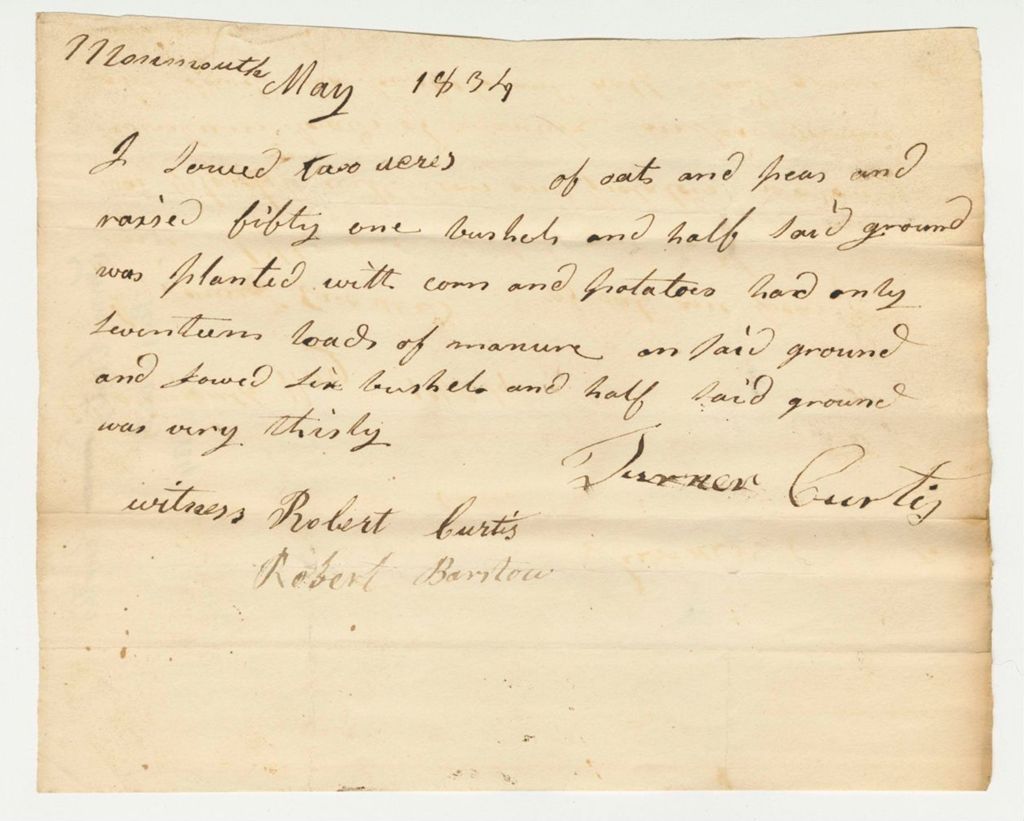 Monmouth May 1834
I sowed two acres of oats and peas and
raised fifty one bushels and half said ground
was planted with corn and potatoes had only
seventeen loads of manure on said ground
and sowed six bushels and half said ground
was very thisly
Turner Curtis
witness Robert Curtis
Robert Barstow